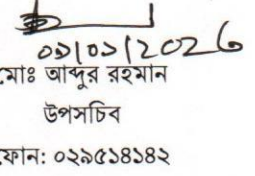 ০১/০১/২০২৬
মোঃ আব্দুর রহমান
উপসচিব
ফোন: ০২৯৫১৪১৪২